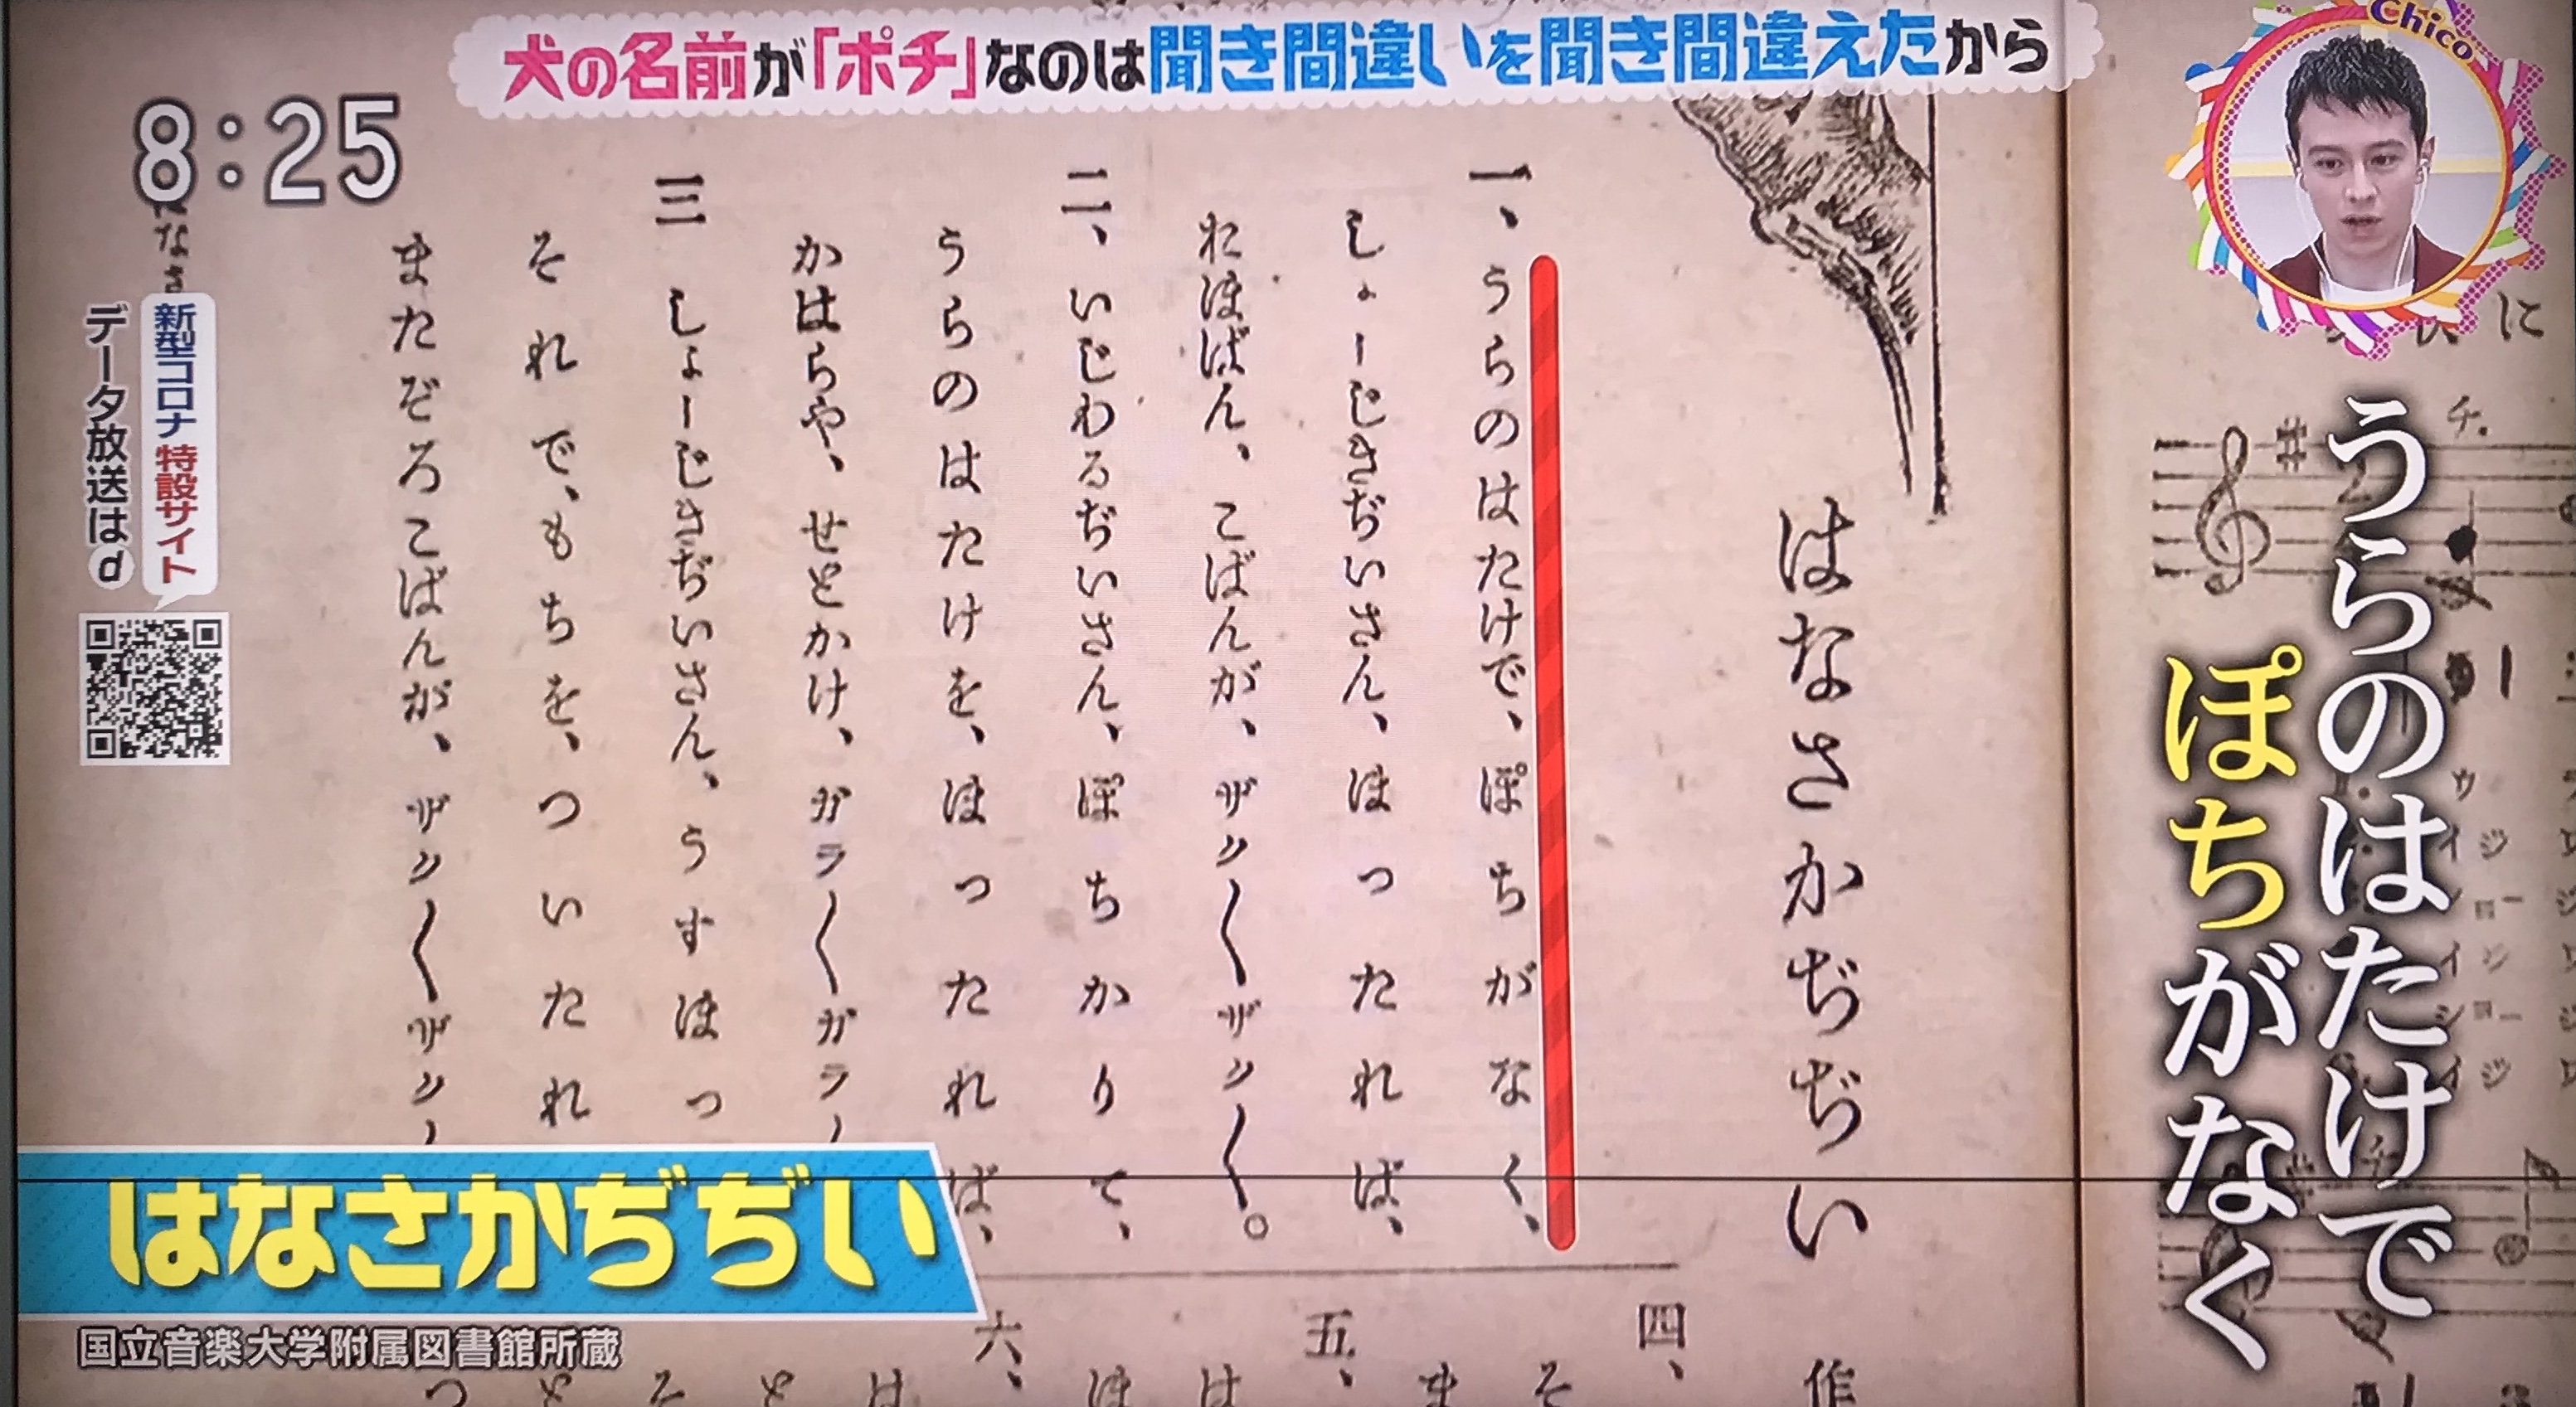 犬の名前が「ポチ」なのは聞き間違いを聞き間違えたから
Chico
8:25
うらのはたけで
ぽちがなく
はなさかぢぢい
作
一、うらのはたけで、ぽちがなく、
しょーじきぢいさん、ほったれば、
おほばん、こばんが、ザク〱ザク〱。
二、いじわるぢいさん、ぽちかりて、
うらのはたけを、ほったれば、
かはらや、せとかけ、ガラ〱ガラ
三 しょーじきぢいさん、うすほっ
それで、もちを、ついたれ
またぞろこばんが、ザク〱ザク
なさ
四、
そ
ま
五、
は
ほ
六、
は
と
そ
と
つ
新型コロナ 特設サイト
データ放送はd
はなさかぢぢい
国立音楽大学附属図書館所蔵